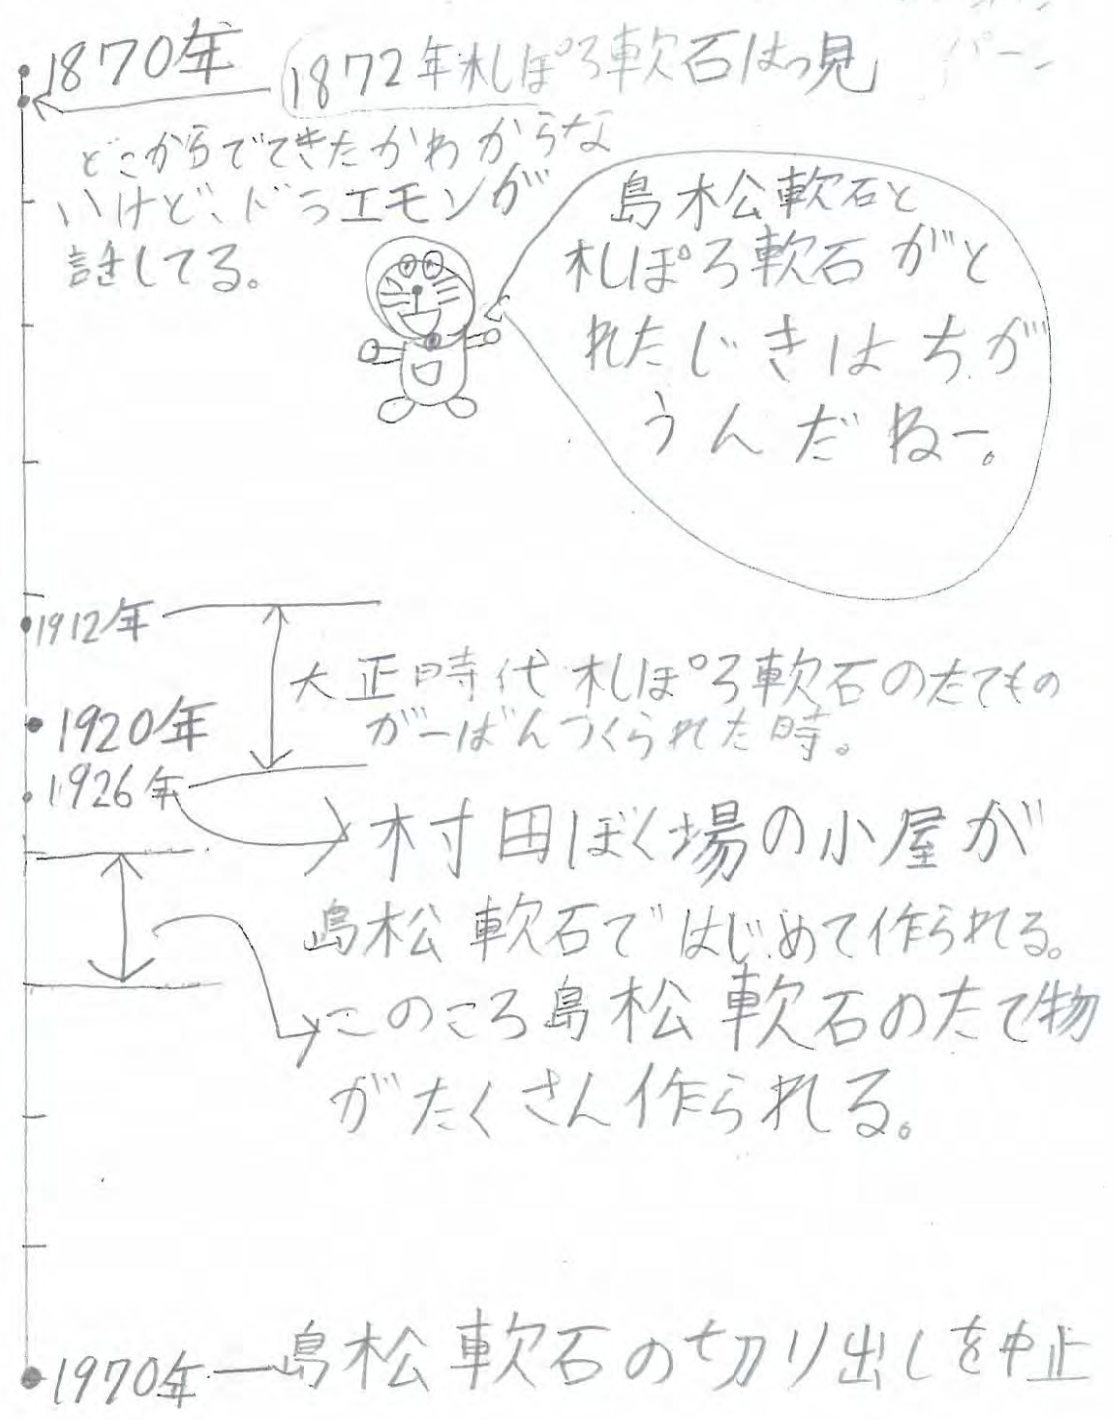 1870年
1872年札ぽろ軟石はっ見
どこからでてきたかわからな
いけど、ドラエモンが
話してる。
島松軟石と
札ぽろ軟石がと
れたじきはちが
うんだねー。
1912年
大正時代 札ぽろ軟石のたてもの
が一ばんつくられた時。
1920年
1926年
村田ぼく場の小屋が
島松軟石ではじめて作られる。
このころ島松軟石のたて物
がたくさん作られる。
1970年
島松軟石の切り出しを中止